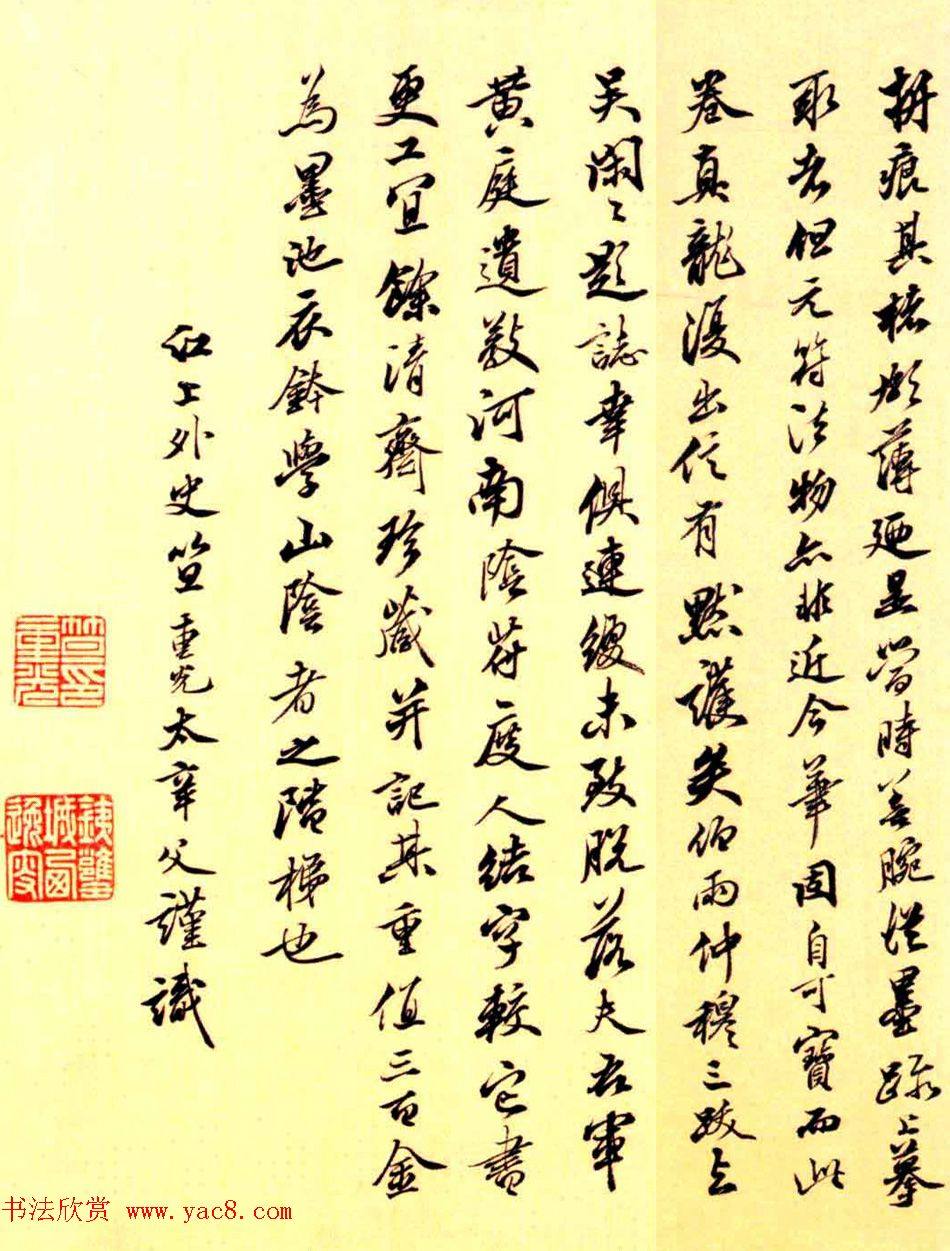 拼痕其楮薄廼是當時善腕從墨跡上摹
取者但元符法物亦非近今固自可寶而此
卷真龍復出信有默護矣伯雨仲穆三跋与
吳閑〻題誌幸俱連綴未致脫落夫右軍
黄庭遺教河南陰符度人結字較它書
更工宜餘清齋珍藏并記其重值三百金
為墨池衣鉢學山陰者之階梯也
江上外史笪重光太辛父謹識
笪重光印
鐵甕城西逸叟
书法欣赏 www.yac8.com